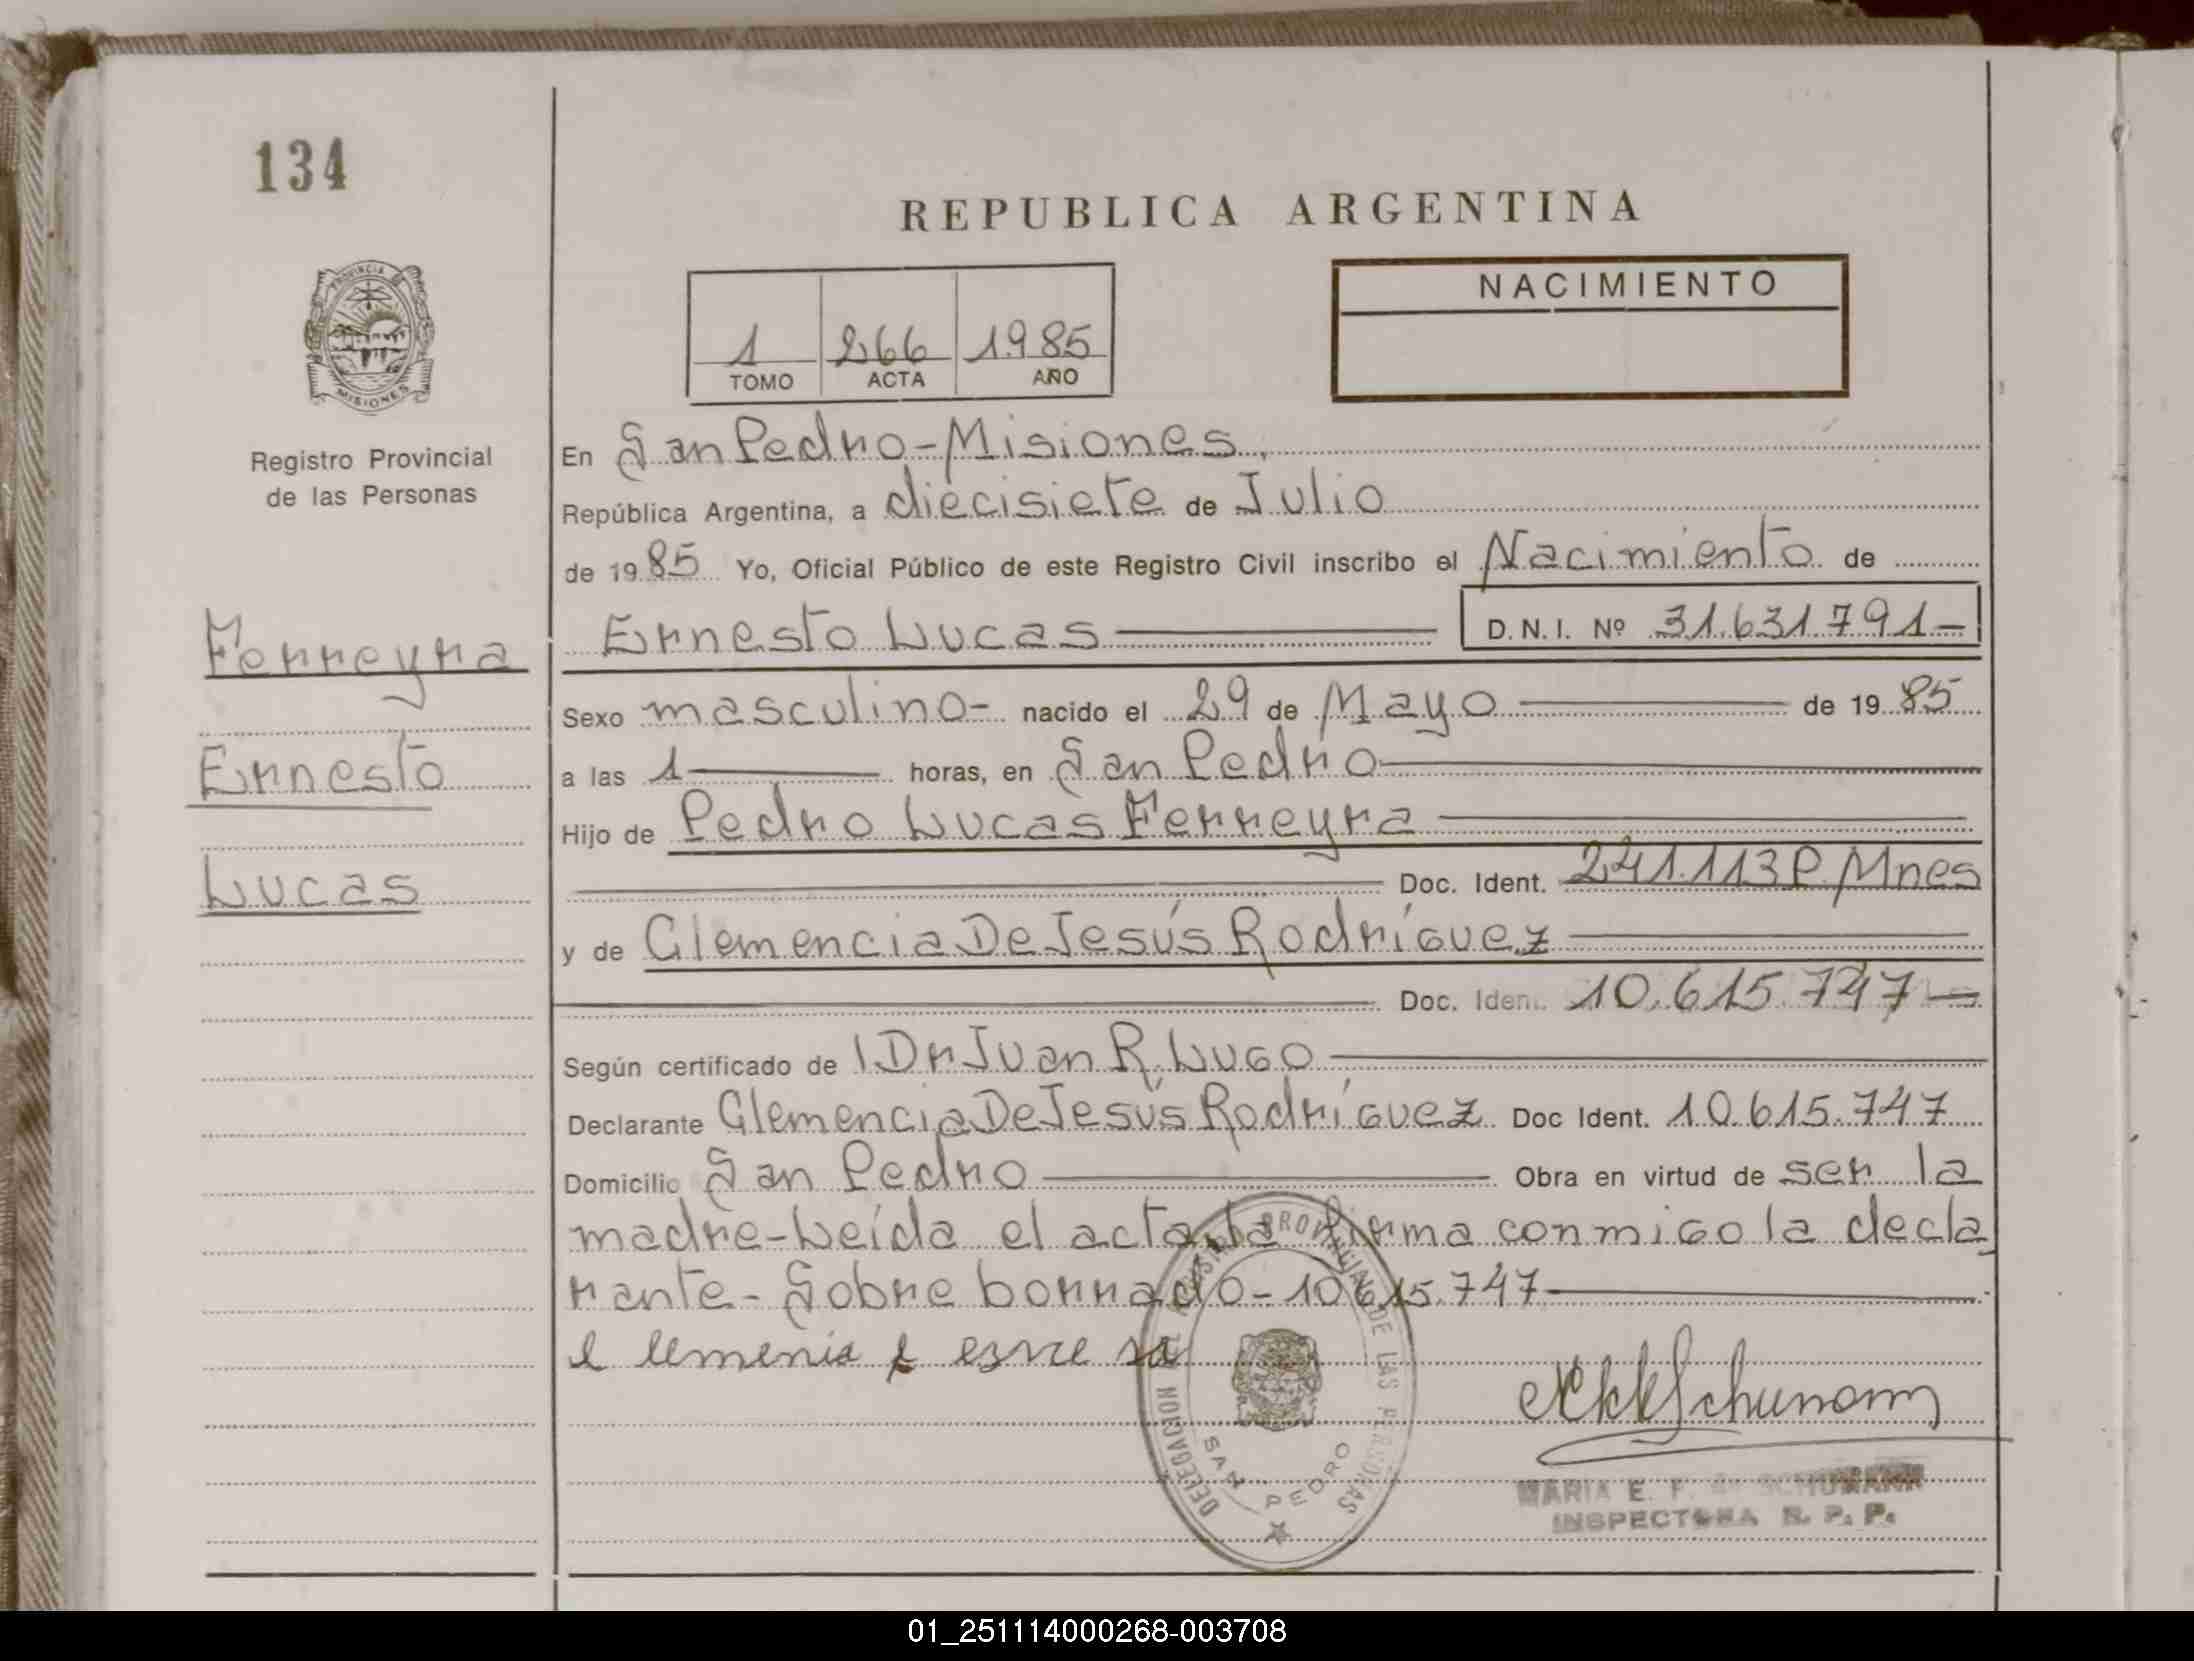 134
REPUBLICA ARGENTINA
NACIMIENTO
1 266 1985
TOMO ACTA AÑO
PROVINCIA DE
MISIONES
Registro Provincial
de las Personas
En San Pedro-Misiones.
República Argentina, a diecisiete de Julio
de 1985 Yo, Oficial Público de este Registro Civil inscribo el Nacimiento de
Ernesto Lucas D.N.I. Nº 31.631.791-
Ferreyra
Ernesto
Lucas
Sexo masculino- nacido el 29 de Mayo de 1985
a las 1 horas, en San Pedro
Hijo de Pedro Lucas Ferreyra
Doc. Ident. 241.113 P. Mnes
y de Clemencia De Jesús Rodríguez
Doc. Ident. 10.615.747-
Según certificado de Dr Juan R. Lugo
Declarante Clemencia De Jesús Rodríguez Doc Ident. 10.615.747
Domicilio San Pedro Obra en virtud de ser la
madre-Leída el acta la firma conmigo la decla
rante- Sobre borrado- 10.615.747
DELEGACION DEL REGISTRO PROVINCIAL DE LAS PERSONAS
SAN PEDRO
MARIA E. F. de SCHUMANN
INSPECTORA R. P. P.
01_251114000268-003708